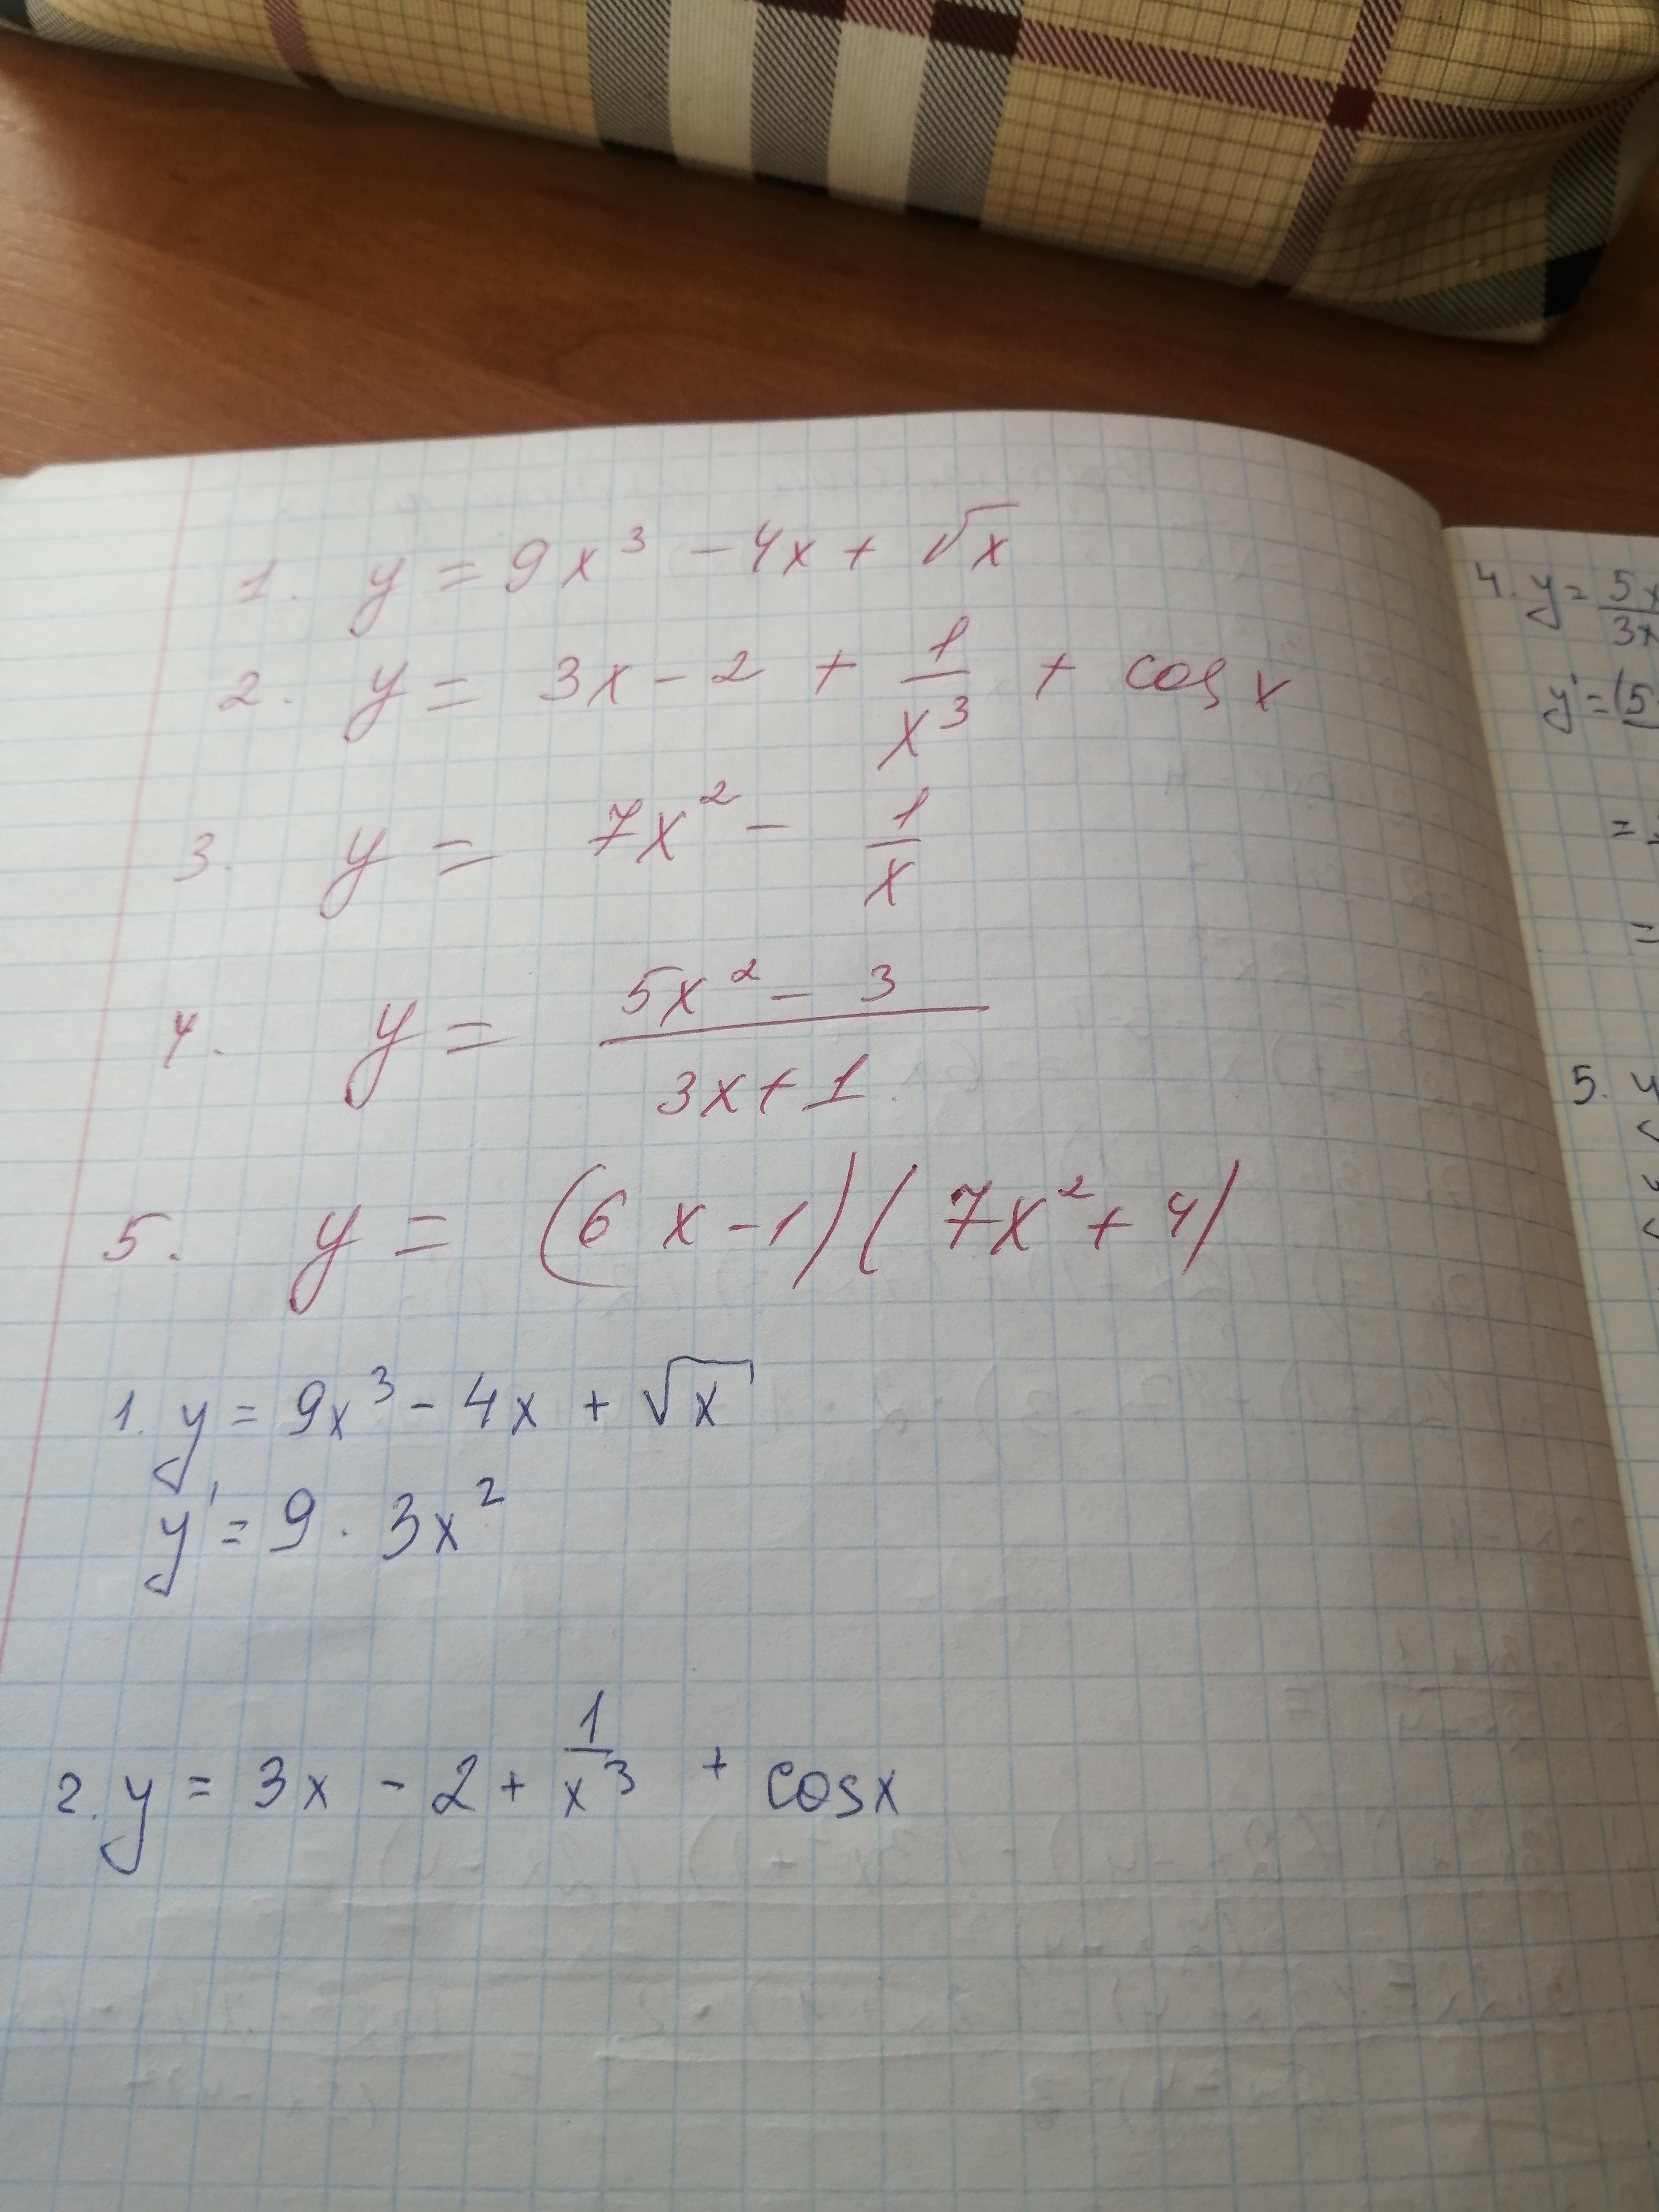 1. y = 9x³ - 4x + √x
2. y = 3x - 2 + 1/x³ + cos x
3. y = 7x² - 1/x
4. y = (5x² - 3)/(3x + 1)
5. y = (6x - 1)(7x² + 4)
1. y = 9x³ - 4x + √x
y' = 9 · 3x²
2. y = 3x - 2 + 1/x³ + cosx
4. y = 5x/3x
y' = (5
=
=
5. y